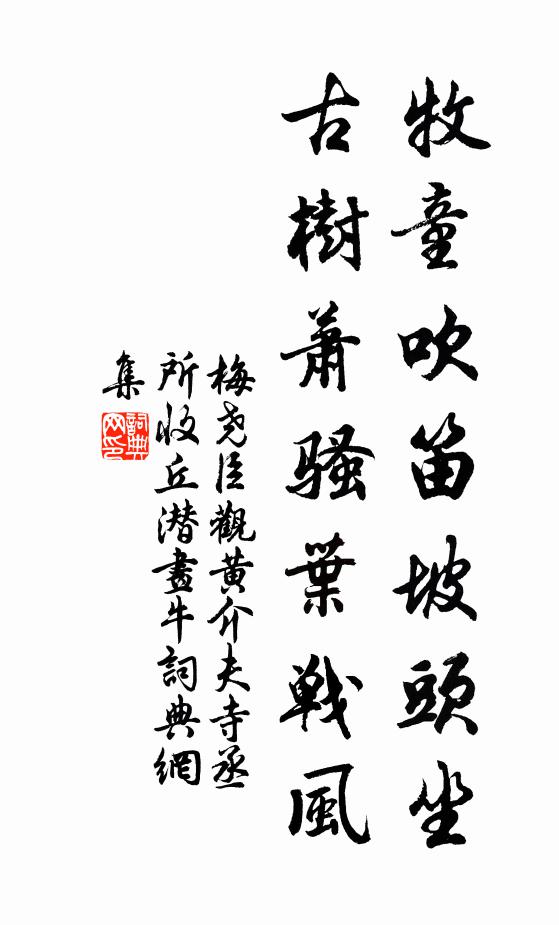 牧童吹笛坡頭坐
古樹蕭騷葉戰風
梅堯臣觀黃介夫寺丞
所收丘潛畫牛詞典網
集
詞典网印